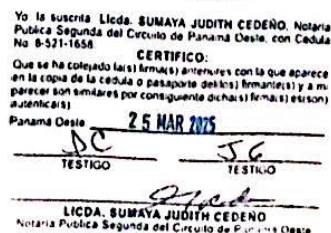 Yo la suscrita Llcda. SUMAYA JUDITH CEDEÑO, Notaria
Publica Segunda del Circuito de Panamá Oeste, con Cedula
No. 8-521-1658.
CERTIFICO:
Que se ha cotejado la(s) firma(s) anteriores con la que aparece
en la copia de la cedula o pasaporte del(os) firmante(s) y a mi
parecer son similares por consiguiente dicha(s) firma(s) es(son)
autentica(s)
Panama Oeste 25 MAR 2025
DC JG
TESTIGO TESTIGO
LICDA. SUMAYA JUDITH CEDEÑO
Notaria Publica Segunda del Circuito de Panama Oeste